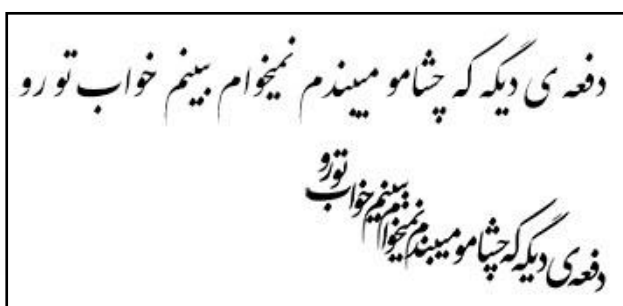 دفعه ی دیگه که چشامو میبندم نمیخوام ببینم خواب تو رو
دفعه ی دیگه که چشامو میبندم نمیخوام ببینم خواب تو رو